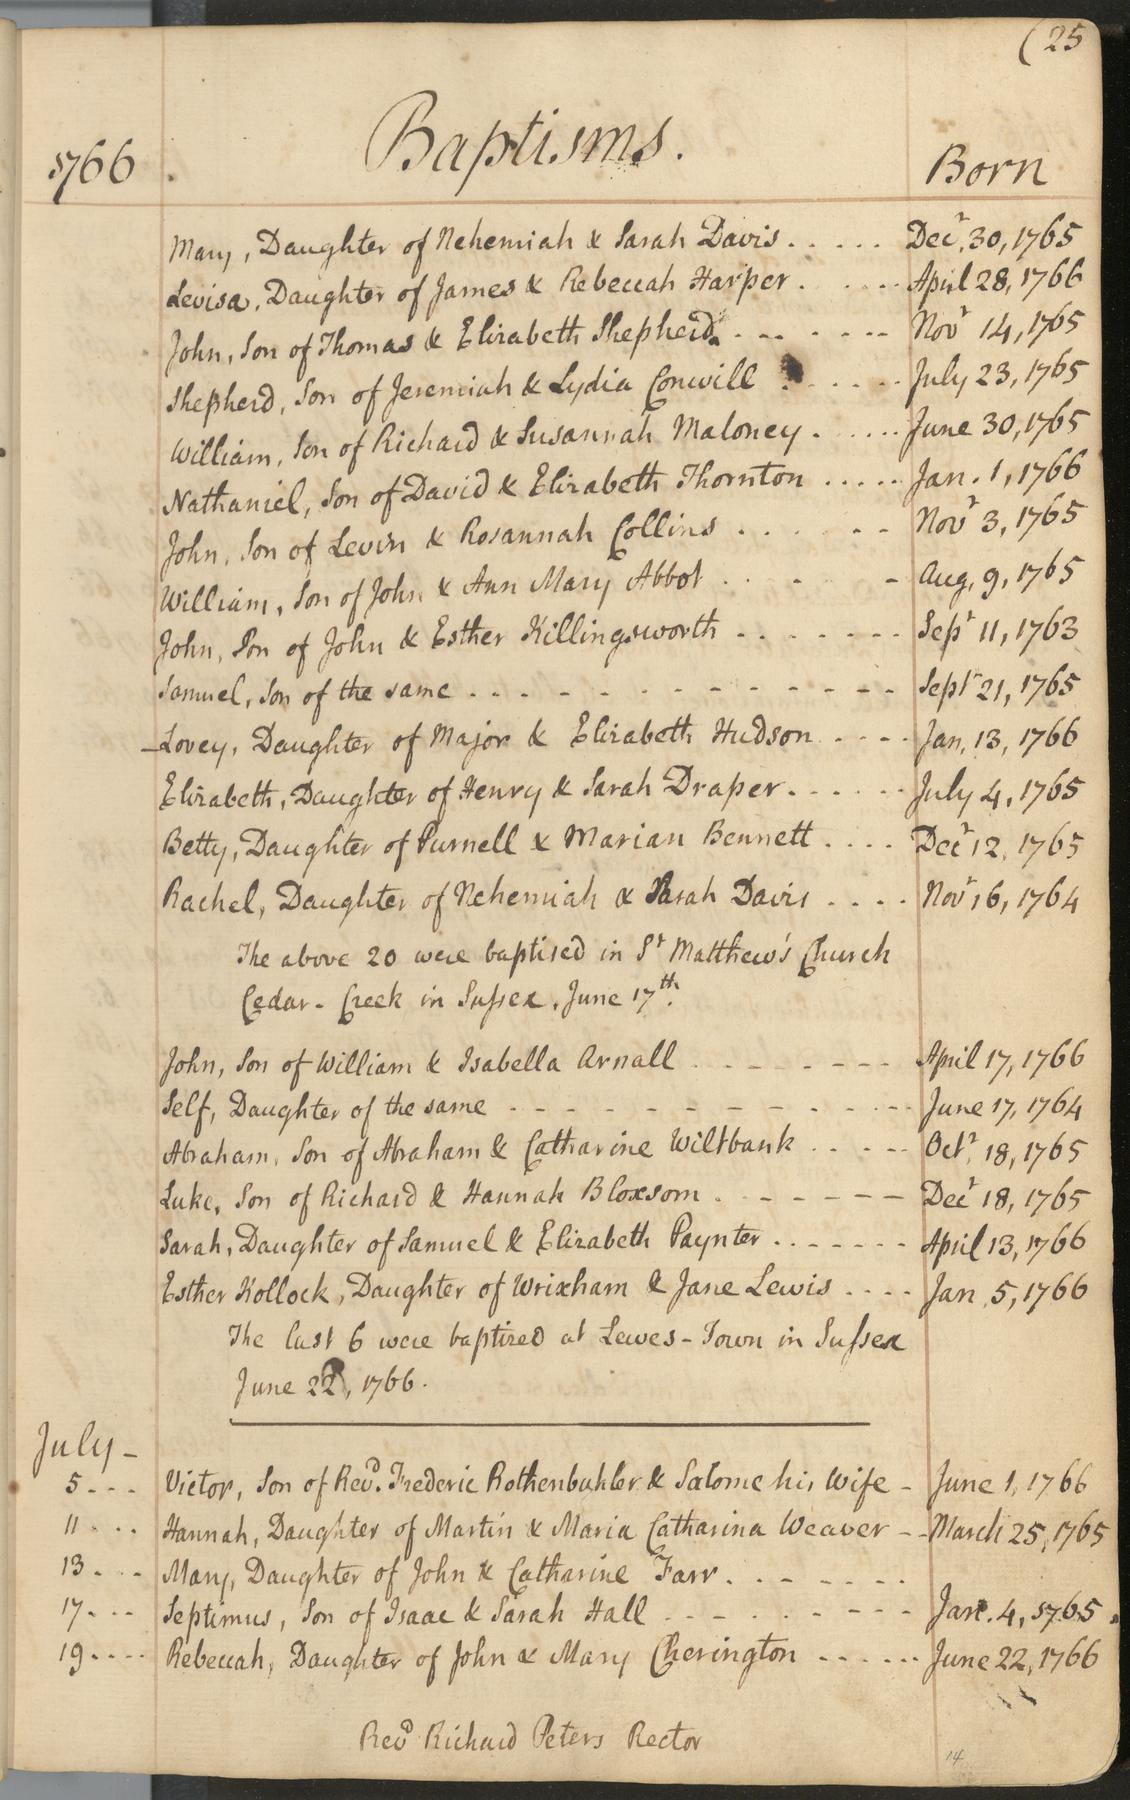 (25
1766 . Baptisms. Born
Mary, Daughter of Nehemiah & Sarah Davis. . . . . Decr. 30, 1765
Levisa, Daughter of James & Rebeccah Harper . . . . April 28, 1766
John, Son of Thomas & Elizabeth Shepherd. - - - - - Novr 14, 1765
Shepherd, Son of Jeremiah & Lydia Conwill . . . . July 23, 1765
William, Son of Richard & Susannah Maloney . . . . June 30, 1765
Nathaniel, Son of David & Elizabeth Thornton . . . . . Jan. 1, 1766
John, Son of Levin & Rosannah Collins . . . . - - Novr 3, 1765
William, Son of John & Ann Mary Abbot . . - - Aug. 9, 1765
John, Son of John & Esther Killingsworth - - - - - - - Sepr 11, 1763
Samuel, Son of the same . - - - - - - - - - - - - Septr 21, 1765
-Lovey, Daughter of Major & Elizabeth Hudson - - - - Jan. 13, 1766
Elizabeth, Daughter of Henry & Sarah Draper. - - - - - July 4, 1765
Betty, Daughter of Purnell & Marian Bennett . . . . Decr 12, 1765
Rachel, Daughter of Nehemiah & Sarah Davis . . . . Novr 16, 1764
The above 20 were baptised in St Matthew's Church
Cedar-Creek in Sussex, June 17th.
John, Son of William & Isabella Arnall . - - - - - - - April 17, 1766
Self, Daughter of the same - - - - - - - - - - - June 17, 1764
Abraham, Son of Abraham & Catharine Wiltbank . . - - - Octr. 18, 1765
Luke, Son of Richard & Hannah Bloxsom . - - - - - - Decr 18, 1765
Sarah, Daughter of Samuel & Elizabeth Paynter . . - - - - - April 13, 1766
Esther Kollock, Daughter of Wrixham & Jane Lewis . . . . Jan. 5, 1766
The last 6 were baptized at Lewes-Town in Sussex
June 22, 1766.
July -
5 - - - Victor, Son of Revd. Frederic Rothenbuhler & Salome his Wife - June 1, 1766
11 . . . Hannah, Daughter of Martin & Maria Catharina Weaver - - March 25, 1765
13 . . . Mary, Daughter of John & Catharine Farr . - - - - - -
17 . - - Septimus, Son of Isaac & Sarah Hall - - - - - - - - Jan. 4, 1765.
19 . . . . Rebeccah, Daughter of John & Mary Cherington - - - - - - June 22, 1766
Revd Richard Peters Rector
14